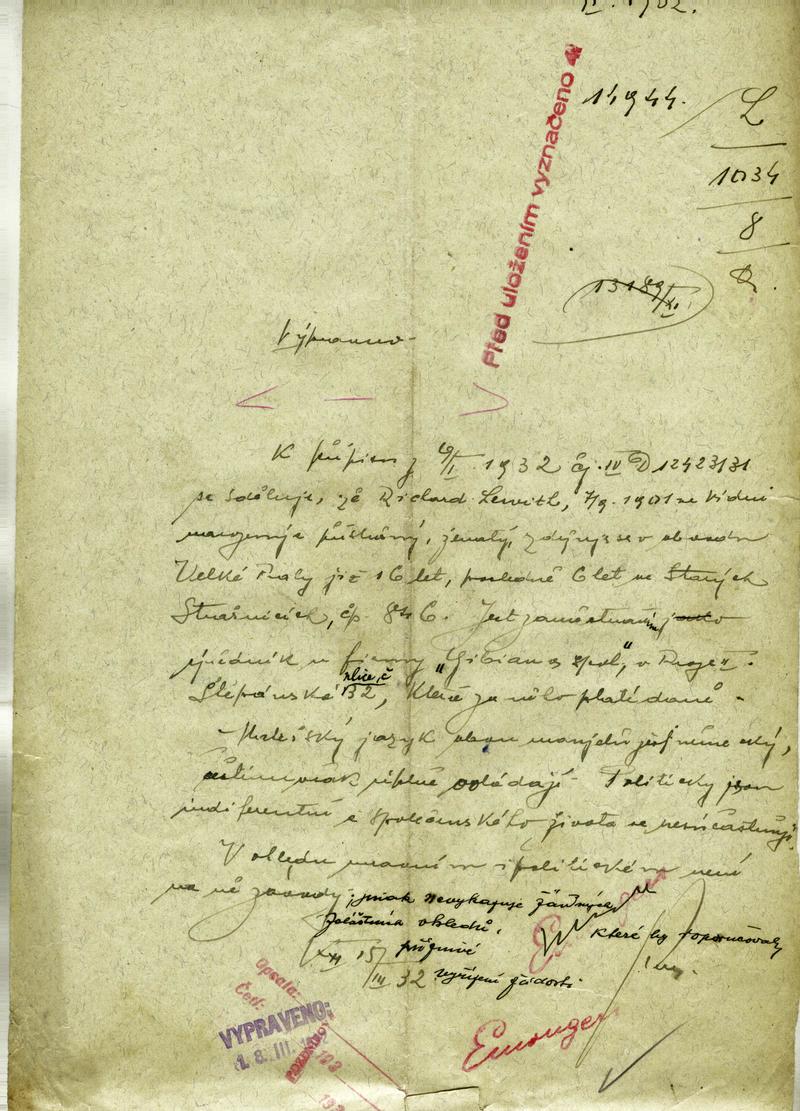 1932.
14944.
L
1034
8
Před uložením vyznačeno
13189/XI.
K přípisu z 9/I. 1932 čj. IV D 12423/31
se sděluje, že Richard Lewith, 7/9. 1901 ve Vídni
narozený a příslušný, ženatý, zdejší se v obvodu
Velké Prahy již 16 let, posledně 6 let ve Starých
Strašnicích, čp. 846. Jest zaměstnaný jako
úředník u firmy "Gibian a spol", v Praze II.
Štěpánská ulice, č 32, která za něho platí daně -
Mateřský jazyk obou manželů jest německý,
češtinu však úplně ovládají - Politicky jsou
indiferentní a společenského života se nesúčastňují.
V ohledu mravním i politickém není
na ně závady; jinak nevykazuje žádných
zvláštních ohledů, které by odporučovaly
příznivé
vyřízení žádosti.
XII 15/III 32
Opsala:
Četl:
VYPRAVENO:
1. 8. III. 1932
193